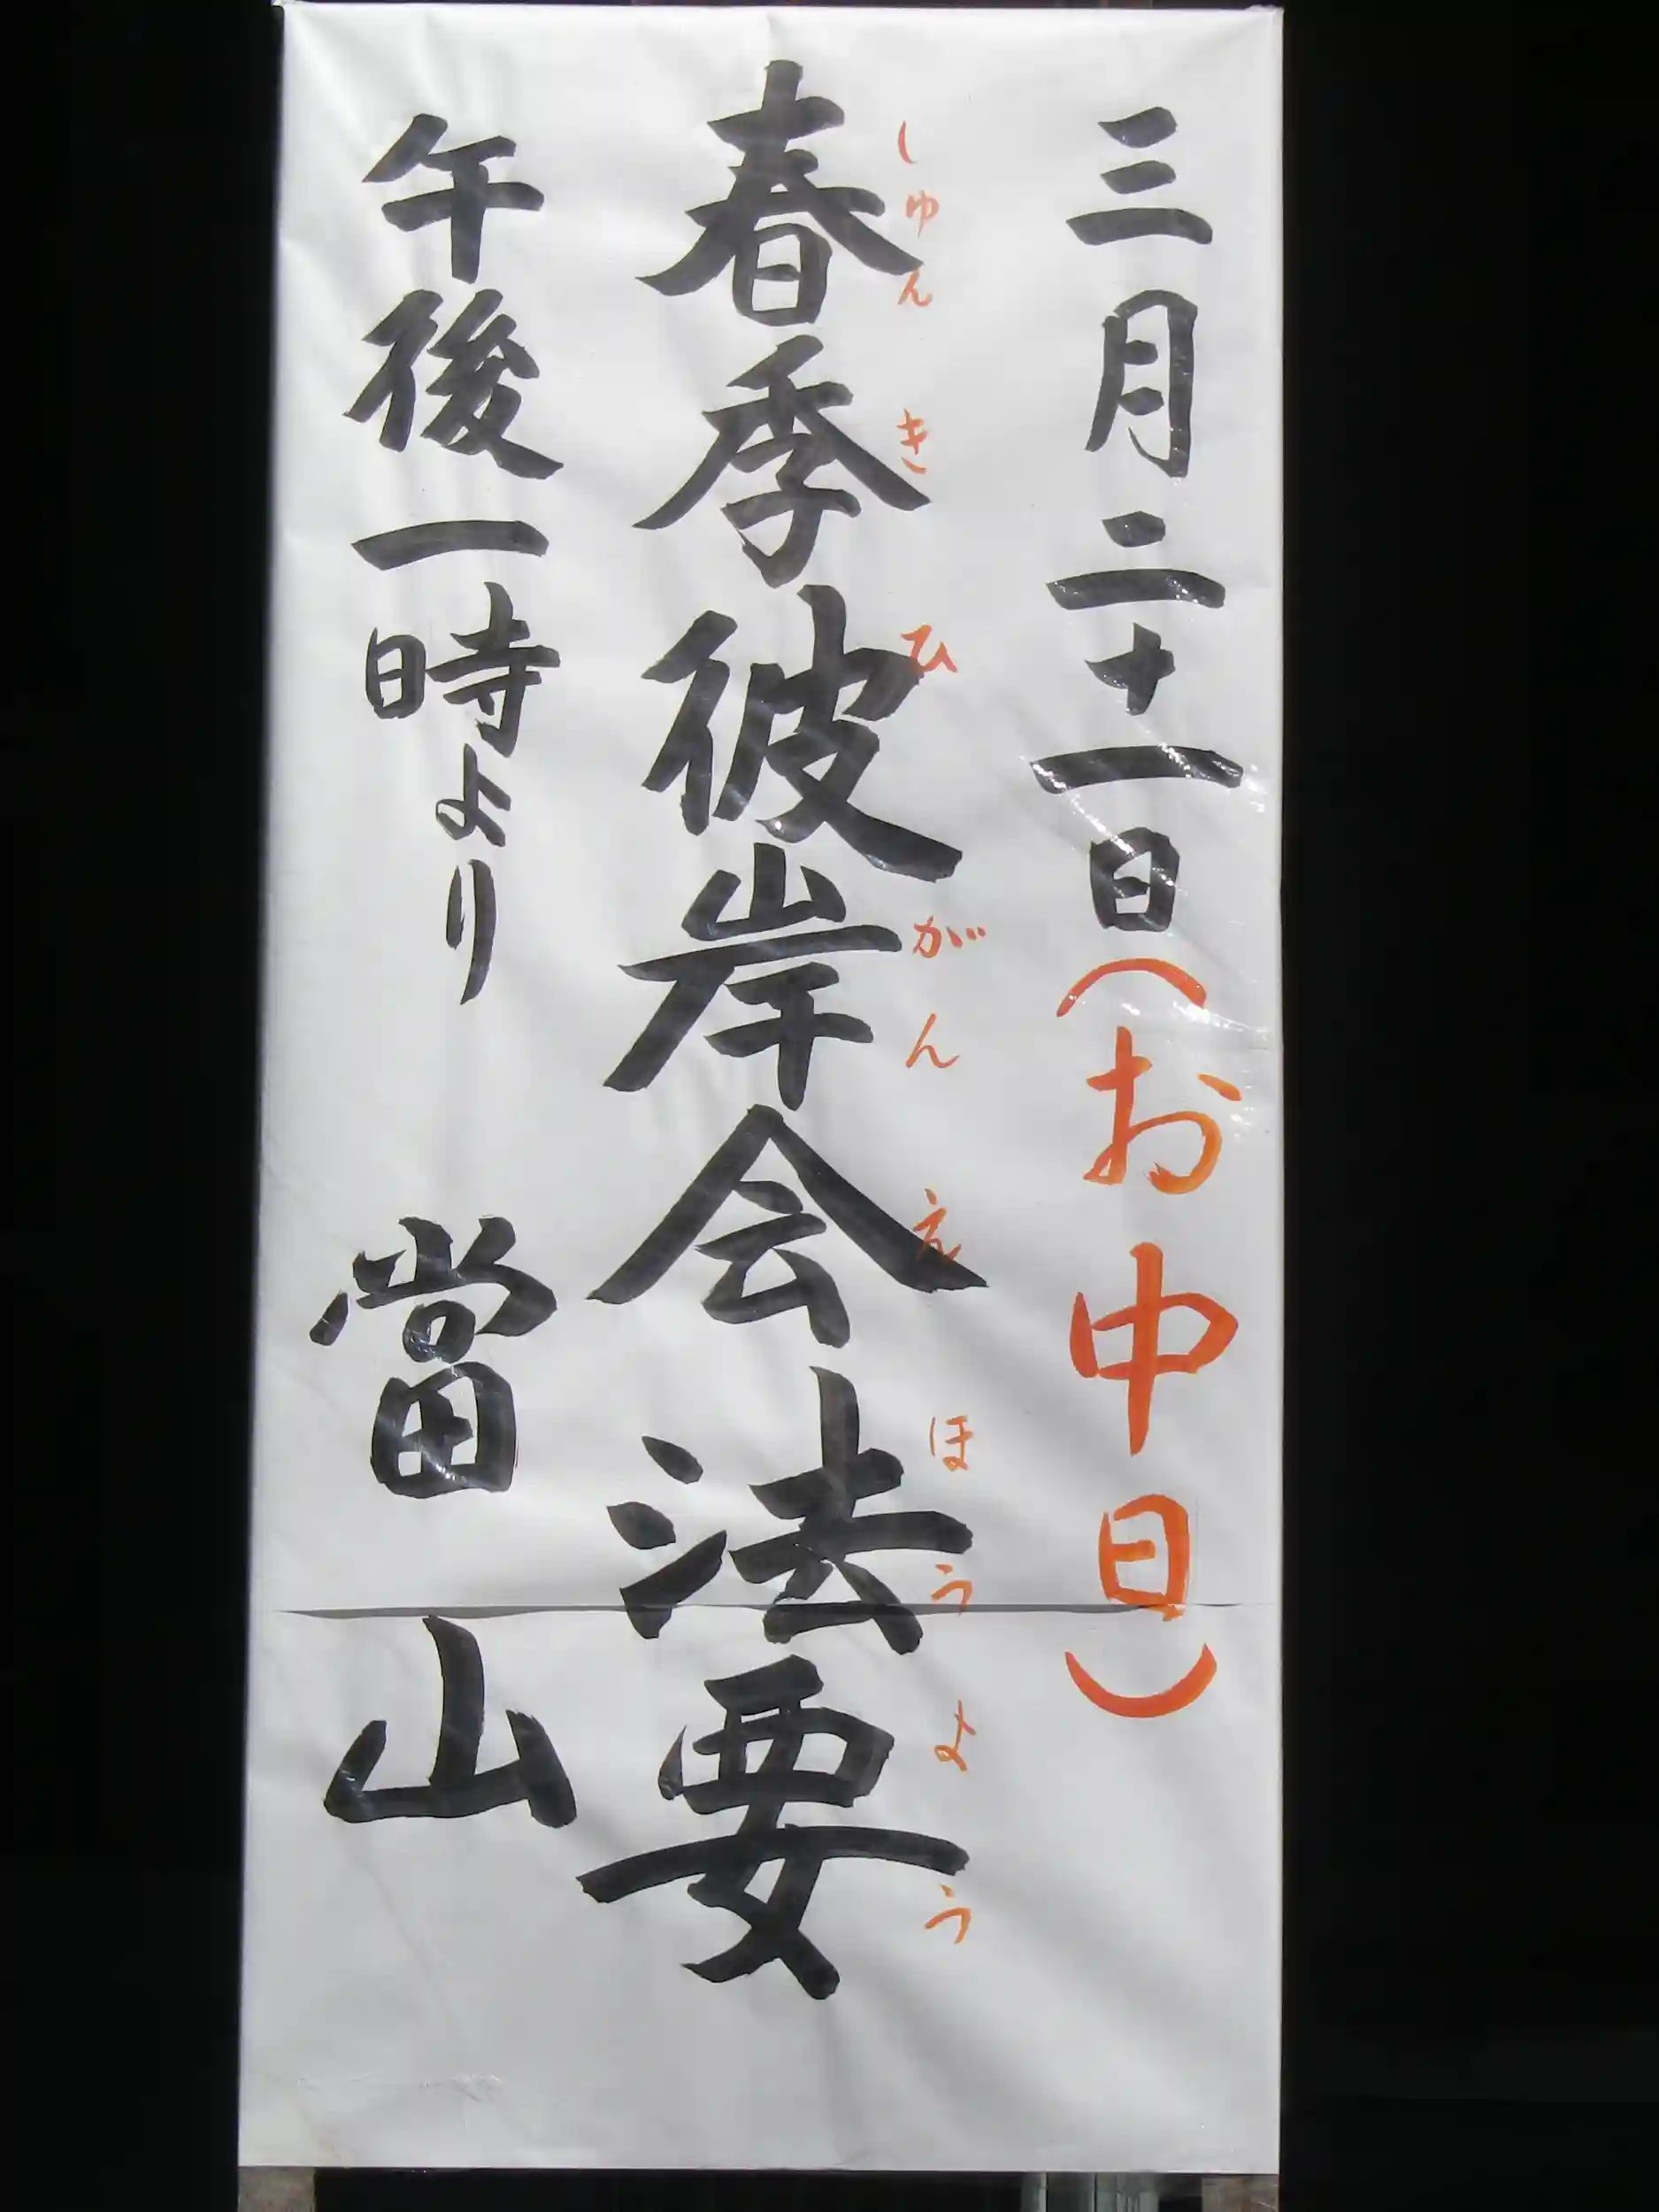 三月二十一日（お中日）
しゅんきひがんえほうよう
春季彼岸会法要
午後一時より　當山